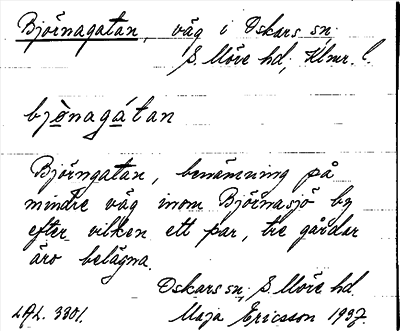 Björnagatan, väg i Oskars sn,
S. Möre hd, Klmr. l.
bjò̱nagá̱tan
Björngatan, benämning på
mindre väg inom Björnasjö by
efter vilken ett par, tre gårdar
äro belägna.
Oskars sn, S. Möre hd
LAL. 3301. Maja Ericsson 1937